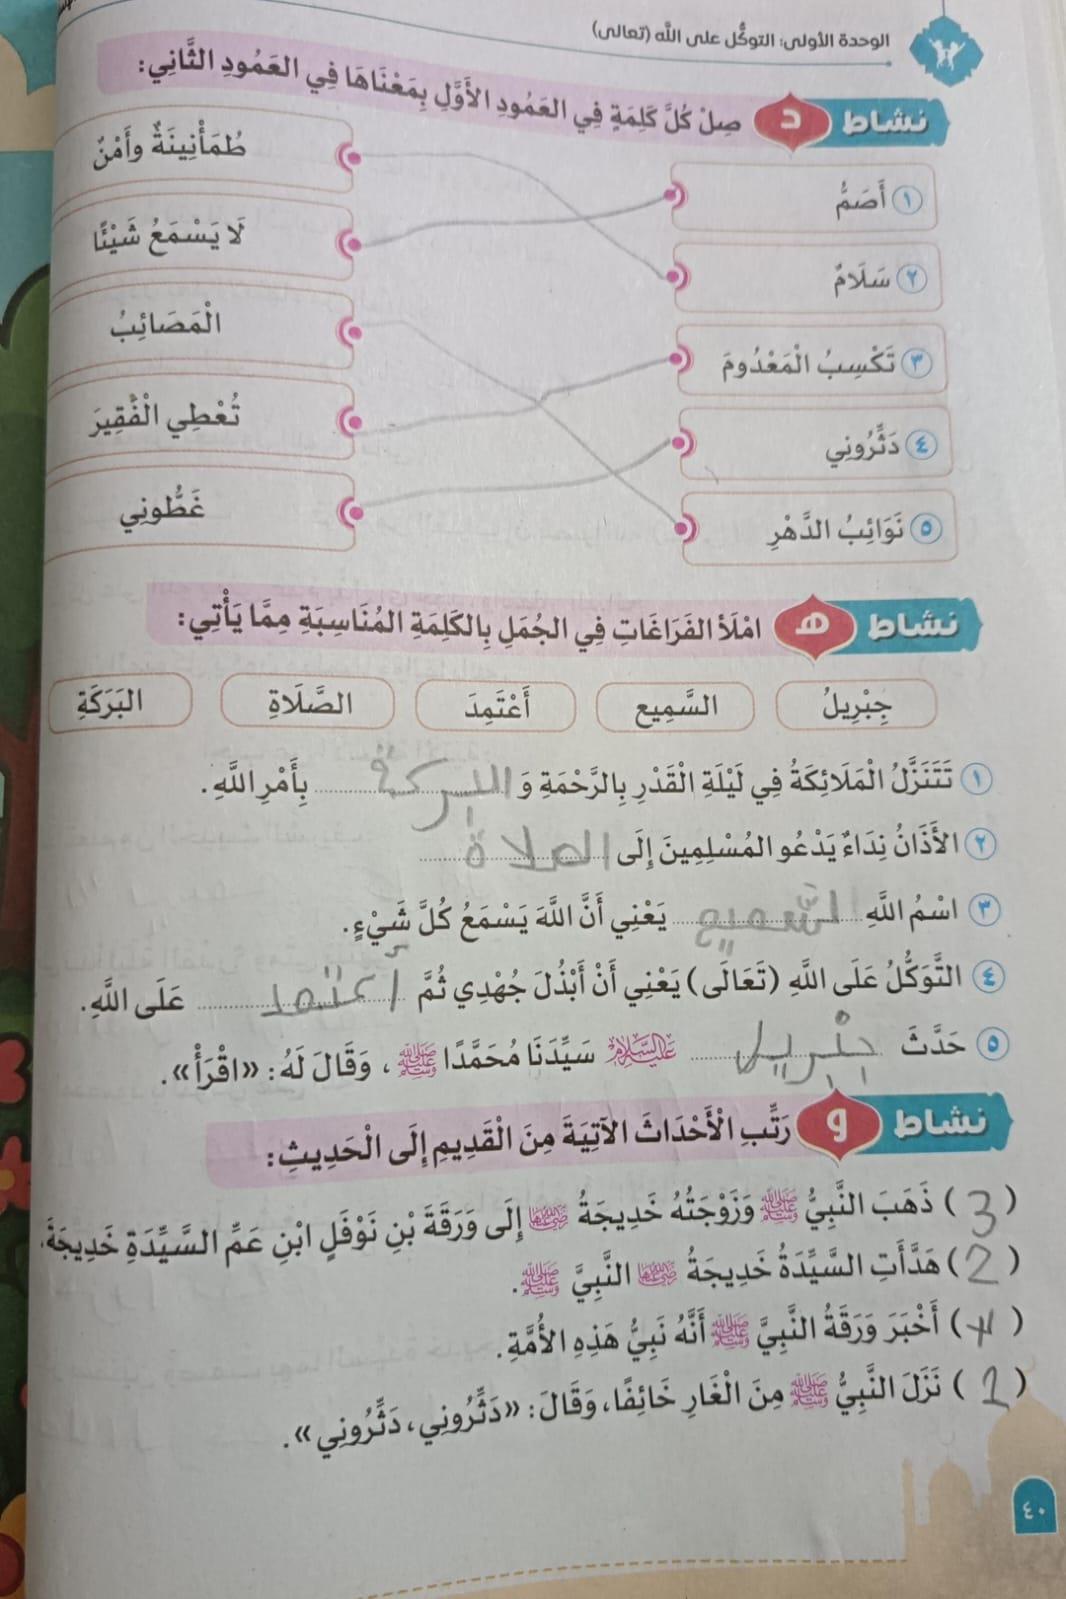 الوحدة الأولى: التوكُّل على الله (تعالى)
نشاط د صِلْ كُلَّ كَلِمَةٍ فِي العَمُودِ الأَوَّلِ بِمَعْنَاهَا فِي العَمُودِ الثَّانِي:
١ أَصَمُّ
طُمَأْنِينَةٌ وأَمْنٌ
٢ سَلَامٌ
لَا يَسْمَعُ شَيْئًا
٣ تَكْسِبُ الْمَعْدُومَ
الْمَصَائِبُ
٤ دَثِّرُونِي
تُعْطِي الْفَقِيرَ
٥ نَوَائِبُ الدَّهْرِ
غَطُّونِي
نشاط هـ امْلَأ الفَرَاغَاتِ فِي الجُمَلِ بِالكَلِمَةِ المُنَاسِبَةِ مِمَّا يَأْتِي:
جِبْرِيلُ السَّمِيع أَعْتَمِدَ الصَّلَاةِ البَرَكَةِ
١ تَتَنَزَّلُ الْمَلَائِكَةُ فِي لَيْلَةِ الْقَدْرِ بِالرَّحْمَةِ وَ البركة بِأَمْرِ اللَّهِ.
٢ الأَذَانُ نِدَاءٌ يَدْعُو المُسْلِمِينَ إِلَى الصلاة
٣ اسْمُ اللَّهِ السَّميع يَعْنِي أَنَّ اللَّهَ يَسْمَعُ كُلَّ شَيْءٍ.
٤ التَّوَكُّلُ عَلَى اللَّهِ (تَعَالَى) يَعْنِي أَنْ أَبْذُلَ جُهْدِي ثُمَّ أعتمد عَلَى اللَّهِ.
٥ حَدَّثَ جبْريل عليه السلام سَيِّدَنَا مُحَمَّدًا ﷺ، وَقَالَ لَهُ: «اقْرَأْ».
نشاط و رَتِّبِ الْأَحْدَاثَ الآتِيَةَ مِنَ الْقَدِيمِ إِلَى الْحَدِيثِ:
(3) ذَهَبَ النَّبِيُّ ﷺ وَزَوْجَتُهُ خَدِيجَةُ رضي الله عنها إِلَى وَرَقَةَ بْنِ نَوْفَلٍ ابْنِ عَمِّ السَّيِّدَةِ خَدِيجَةَ.
(2) هَدَّأَتِ السَّيِّدَةُ خَدِيجَةُ رضي الله عنها النَّبِيَّ ﷺ.
(4) أَخْبَرَ وَرَقَةُ النَّبِيَّ ﷺ أَنَّهُ نَبِيُّ هَذِهِ الأُمَّةِ.
(1) نَزَلَ النَّبِيُّ ﷺ مِنَ الْغَارِ خَائِفًا، وَقَالَ: «دَثِّرُونِي، دَثِّرُونِي».
٤٠